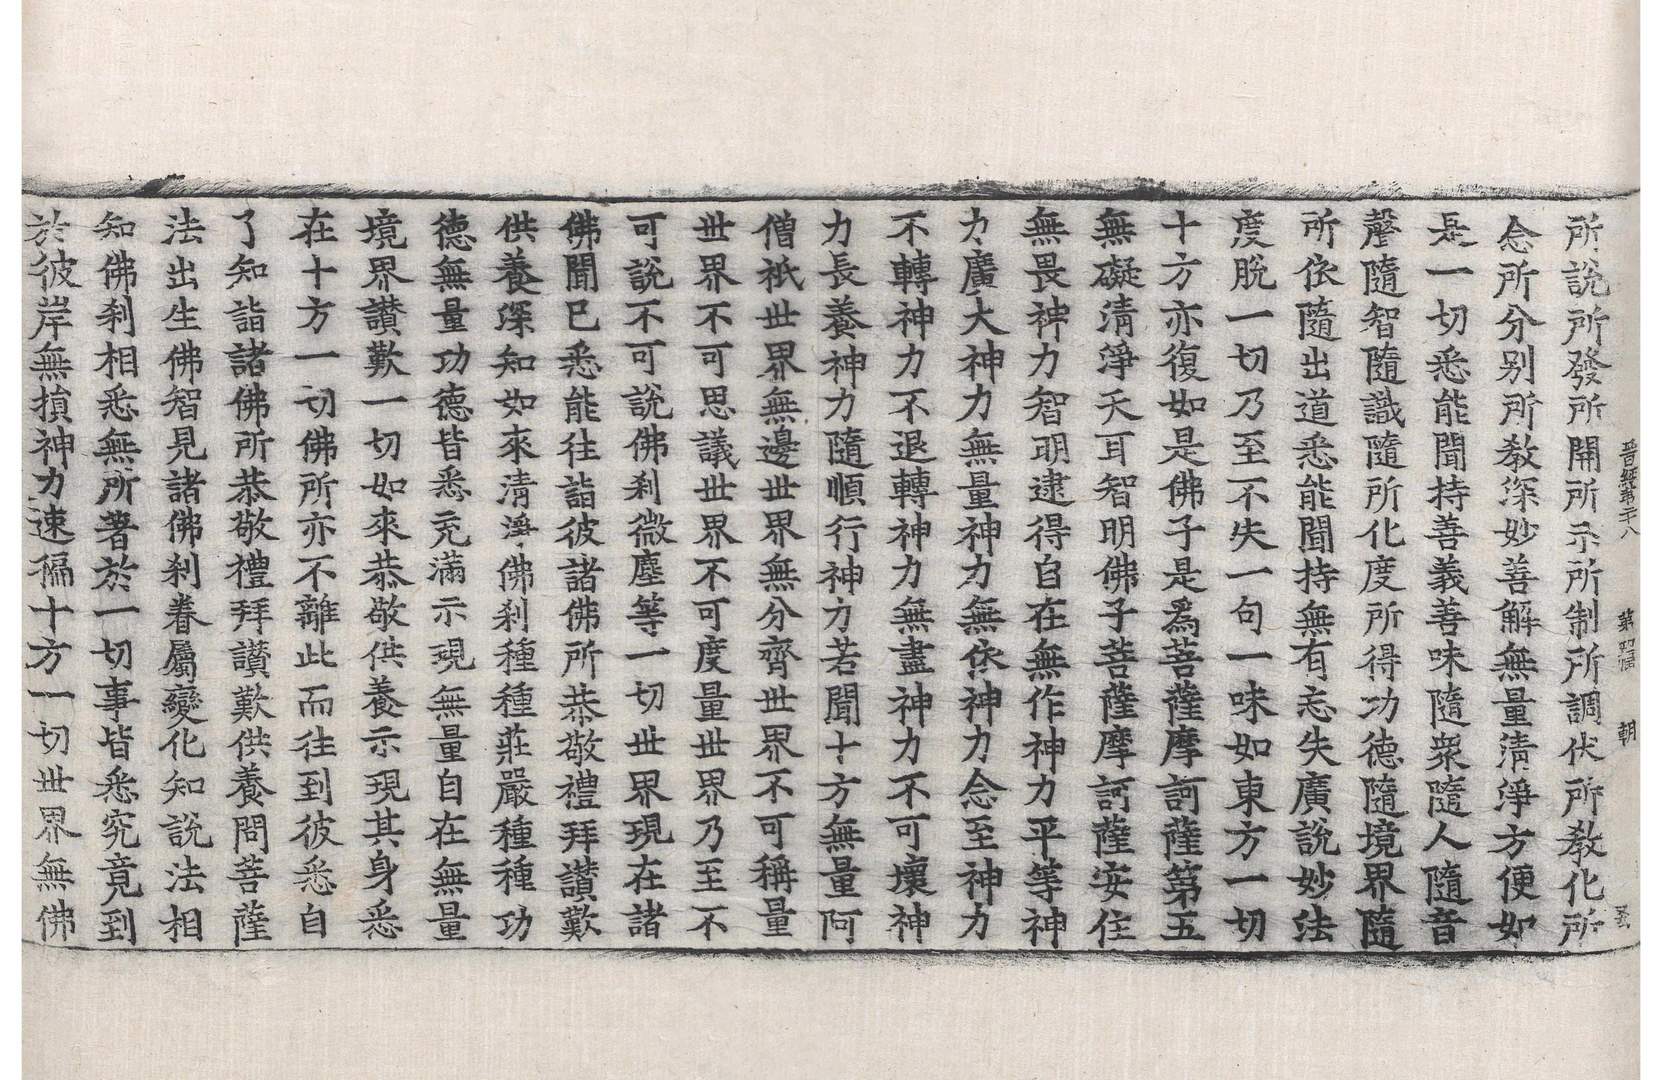 晉經第二十八 第四幅 朝
所說所發所開所示所制所調伏所教化所
念所分別所教深妙善解無量清淨方便如
是一切悉能聞持善義善味隨衆隨人隨音
聲隨智隨識隨所化度所得功德隨境界隨
所依隨出道悉能聞持無有忘失廣說妙法
度脫一切乃至不失一句一味如東方一切
十方亦復如是佛子是爲菩薩摩訶薩第五
無礙清淨天耳智明佛子菩薩摩訶薩安住
無畏神力智明逮得自在無作神力平等神
力廣大神力無量神力無依神力念至神力
不轉神力不退轉神力無盡神力不可壞神
力長養神力隨順行神力若聞十方無量阿
僧祇世界無邊世界無分齊世界不可稱量
世界不可思議世界不可度量世界乃至不
可說不可說佛刹微塵等一切世界現在諸
佛聞已悉能往詣彼諸佛所恭敬禮拜讃歎
供養深知如來清淨佛刹種種莊嚴種種功
德無量功德皆悉充滿示現無量自在無量
境界讃歎一切如來恭敬供養示現其身悉
在十方一切佛所亦不離此而往到彼悉自
了知詣諸佛所恭敬禮拜讃歎供養問菩薩
法出生佛智見諸佛刹眷屬變化知說法相
知佛刹相悉無所著於一切事皆悉究竟到
於彼岸無損神力速徧十方一切世界無佛